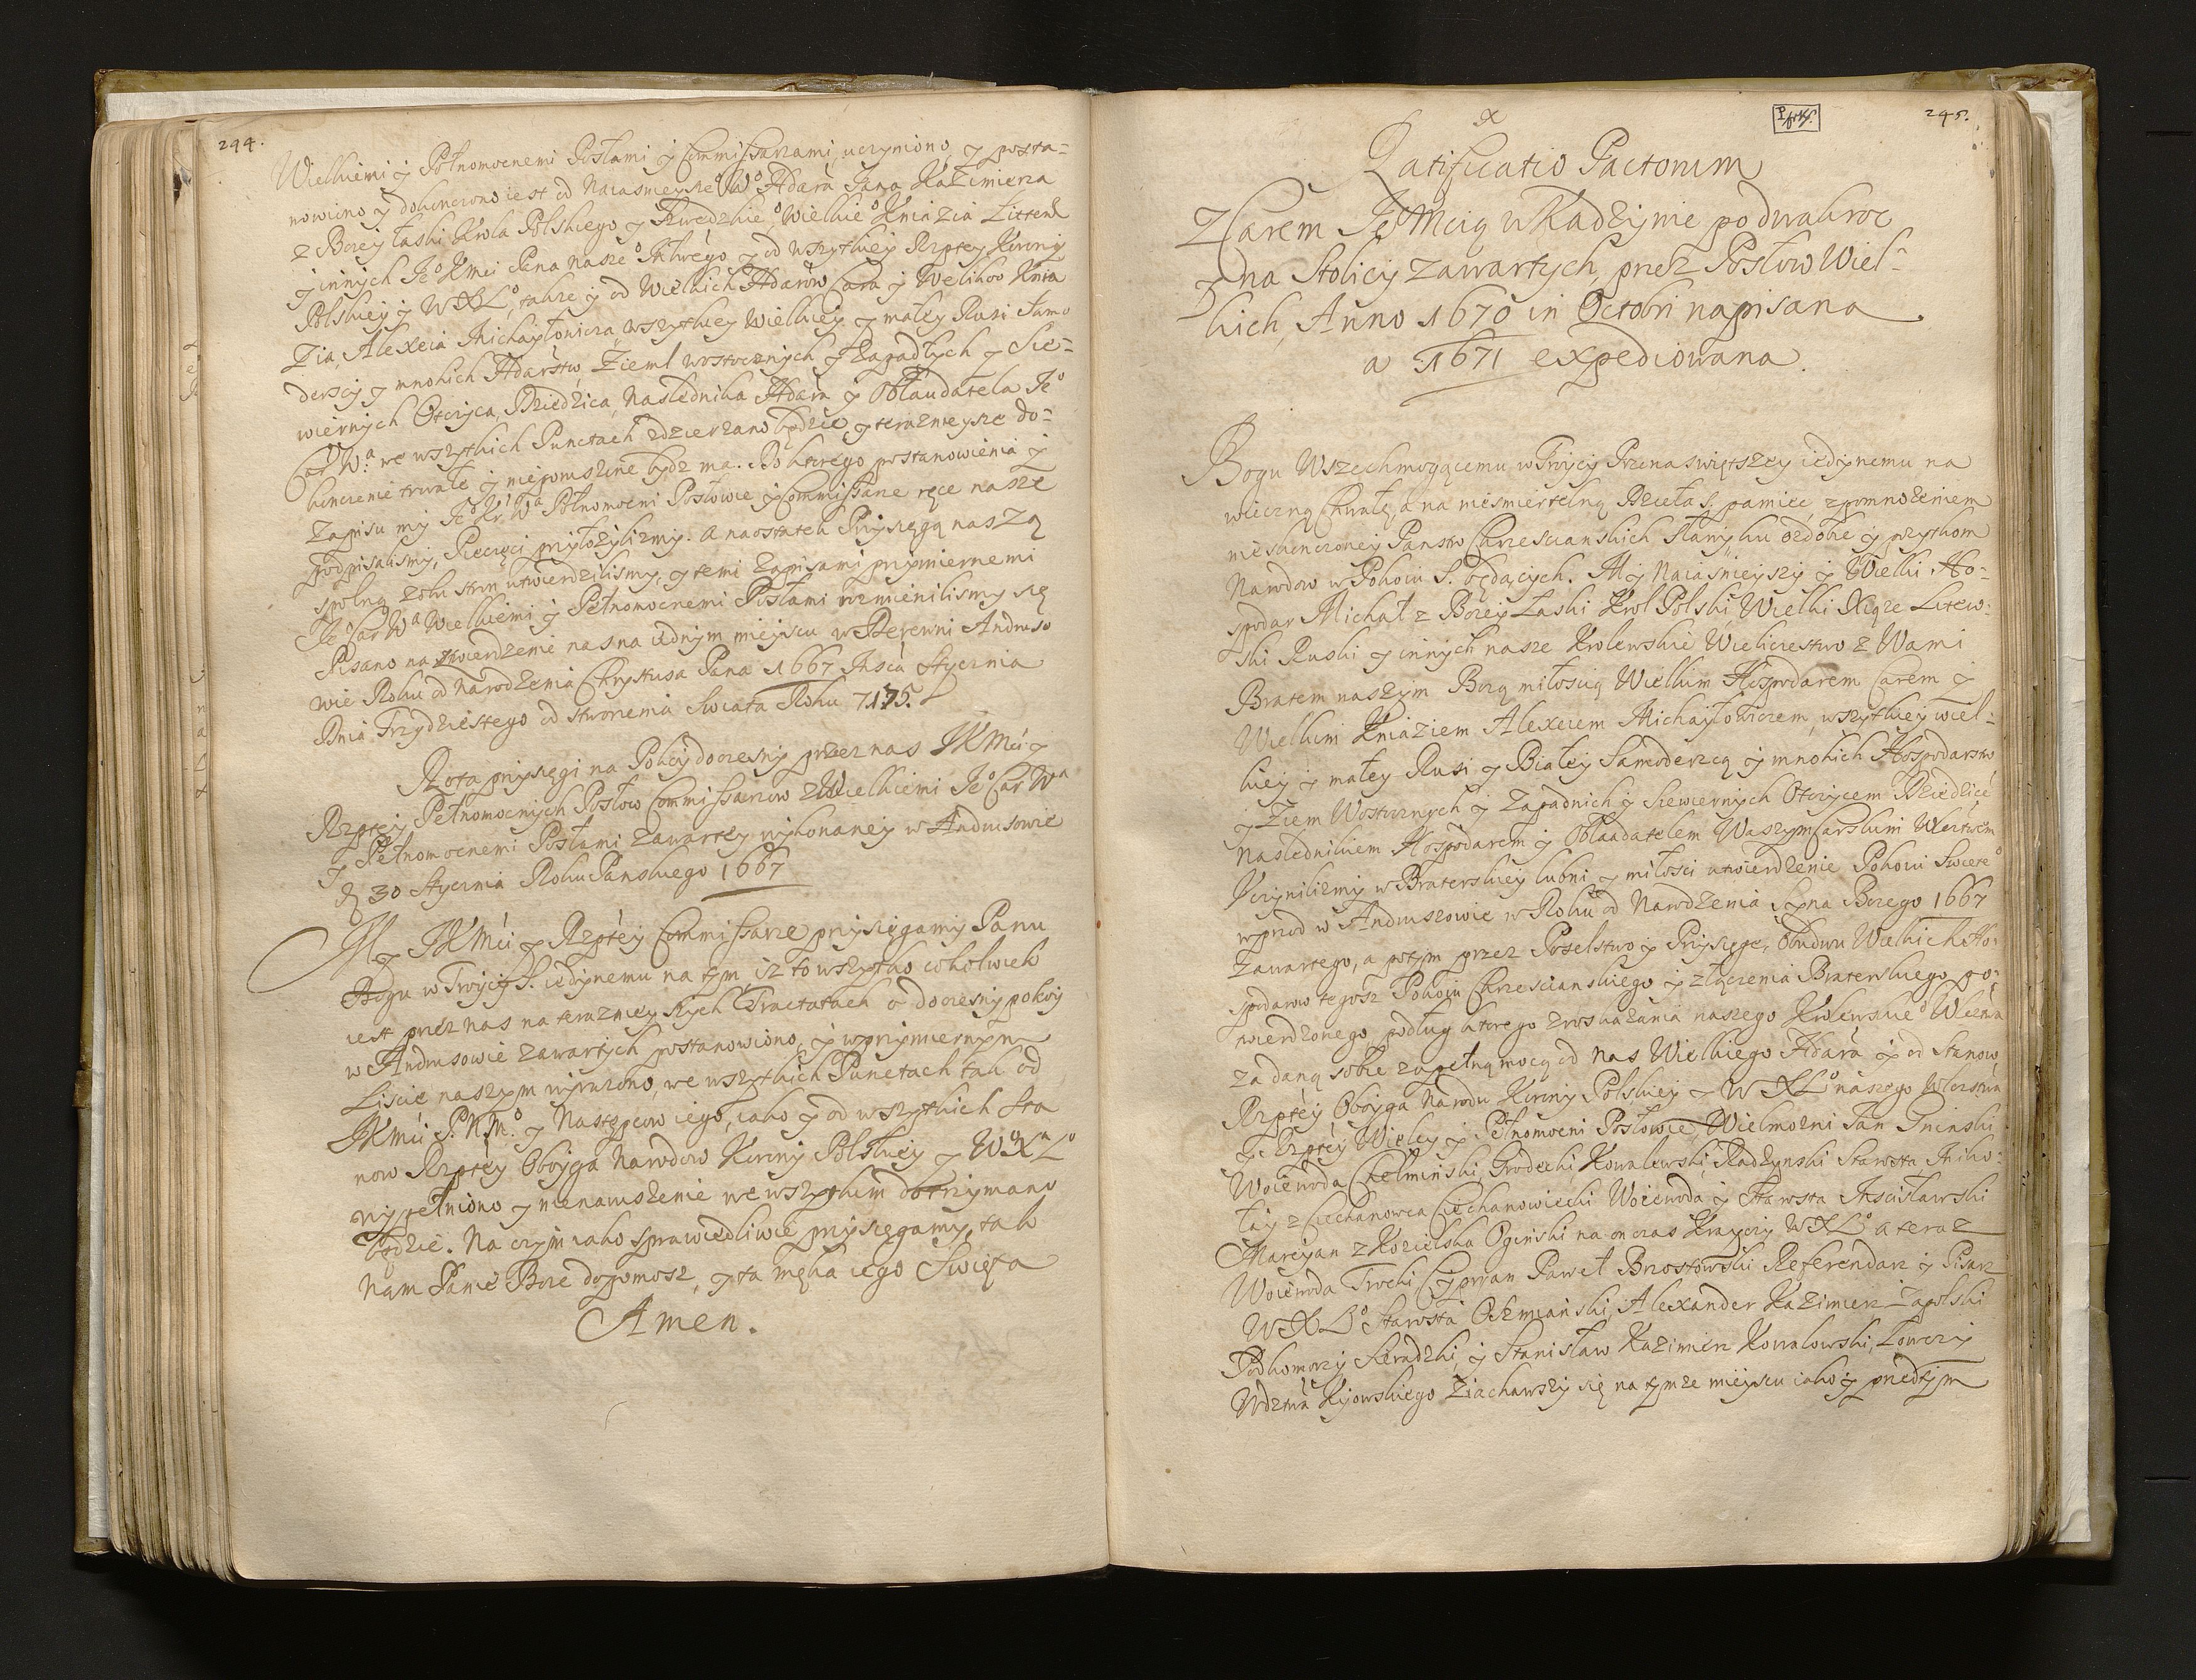 244.
Wielkiemi y Pełnomocnemi Posłami y Commissarzami, uczyniono, y posta-
nowiono y dokonczono iest od Naiasnieysze° Wo Hdara Jana Kazimierza
z Bozey łaski Krola Polskiego y Szwedzkie°, Wielkie° Kniazia Littew
y innych Je° Kmci Pana nasze° Mtwego y od wszytkiey Rzptey Korony
Polskiey y WXL°, takze y od Wielkich Hdarow Cara y Welikoo Knia
zia, Alexeia Michayłowicza, wszytkiey Wielkiey y małey Rusi Samo
derzcy y mnohich Hdarstw, Zieml wostocznych y Zapadłych y Sie-
wiernych Otczyca, Dziedzica, Naslednika Hdara y Obłaudatela Je°
Car Wa. we wszytkich Punctach zdzierzano będzie y teraznieysze do-
konczenie trwałe y nieporuszne bydz ma. Po ktorego postanowienia y
Zapisu my Je° Kr. Wa Połnomocni Posłowie y Commissarze ręce nasze
podpisalismy, Pieczęci przyłozylizmy. A naostatek Przysięgą naszą
społną zobu stron utwierdzilismy, y temi Zapisami przymiernemi
Je° Car Wa Wielkiemi y Pełnomocnemi Posłami rozmienilismy się
Pisano na ztwierdzenie nas na iednym mieyscu w Derewni Andruso
wie Roku od Narodzenia Chrystusa Pana 1667 Msca Stycznia
Dnia Trzydziestego od stworzenia Swiata Roku 7175.
Rota przysięgi na Pokoy doczesny przez nas JKMci y
Rzptey Pełnomocnych Posłow Commissarzow z Wielkiemi Je° Car Wa
y Pełnomocnemi Posłami zawartey wykonaney w Andrusowie
D. 30 Stycznia Roku Panskiego 1667
My JKMci y Rzptey Commissarze przysięgamy Panu
Bogu w Troycy S. iedynemu na tym, iz to wszytko cokolwiek
iest przez nas na teraznieyszych Tractatach o doczesny pokoy
w Andrusowie zawartych postanowiono, y w przymiernym
Liscie naszym wyrazono, we wszytkich Punctach tak od
JKMci P. N. M.° y Nastepcow iego, iako y od wszytkich Sta
now Rzptey Oboyga Narodow Korony Polskiey y W° X° L°
wypełniono y nienaruszenie we wszytkim dotrzymano
będzie. Na czym iako sprawiedliwie przysięgamy, tak
Nam Panie Boze dopomosz, y ta męka iego Swięta
Amen.
245.
Ratificatio Pactorum
Z Carem Je° Mcią w Kadzynie podwakroc
y na Stolicy zawartych, przez Posłow Wiel-
kich, Anno 1670 in Octobri napisana
a 1671 expediowana.
Bogu Wszechmogącemu w Troycy Przenaswiętszey iedynemu na
wieczną Chwałę, a na niesmiertelną Dzieła S. pamięć, z pomnozeniem
nieskonczoney Panstw Chrzescianskich Sławy ku ozdobie y pozytkom
Narodow w Pokoiu S. będących. My Naiasnieyszy y Wielki Ho-
spodar Michał z Bozey Łaski Krol Polski, Wielki Xiąze Litew-
ski Ruski y innych nasze Krolewskie Wieliczestwo z Wami
Bratem naszym Bozą miłoscią Wielkim Hospodarem Carem y
Wielkim Kniaziem Alexeiem Michayłowiczem, wszytkiey wiel-
kiey y małey Rusi y Białey Samoderzcą y mnohich Hospodarstw
y Ziem Wostocznych y Zapadnich y Siewiernych Otczycem Dziedzice
Naslednikiem Hospodarem y Obłaadatelem Waszym Carskim Wlcztwem
Uczynilizmy w Braterskiey lubni y miłosci utwierdzenie Pokoiu Swięte°
wprzod w Andruszowie w Roku od Narodzenia Syna Bozego 1667
Zawartego, a potym przez Poselstwo y Przysięgę, obudwu Wielkich Ho-
spodarow tegosz Pokoiu Chrzescianskiego y złączenia Braterskiego po-
twierdzonego, podług ktorego zroskazania naszego Krolewskie° Wlczwa
za daną sobie zupełną mocą od nas Wielkiego Hdara y od Stanow
Rzptey Oboyga Narodu Korony Polskiey y WXL° naszego Wlcstwa
y Rzptey Wielcy y Pełnomocni Posłowie, Wielmozni Jan Gninski
Woiewoda Chełminski, Grodecki, Kowalewski, Radzynski Starosta Miko-
łay z Ciechanowca Ciechanowiecki Woiewoda y Starosta Mscisławski
Marcyan z Kozielska Oginski na on czas Krayczy WXL° a teraz
Woiewoda Trocki Cypryan Paweł Brzostowski Referendarz y Pisarz
WXL° Starosta Oszmianski, Alexander Kazimierz Zapolski
Podkomorzy Sieradzki, y Stanisław Kazimierz Kowalowski, Łowczy
Wdztwa Kijowskiego Ziachawszy się na tymze mieyscu iako y przedtym